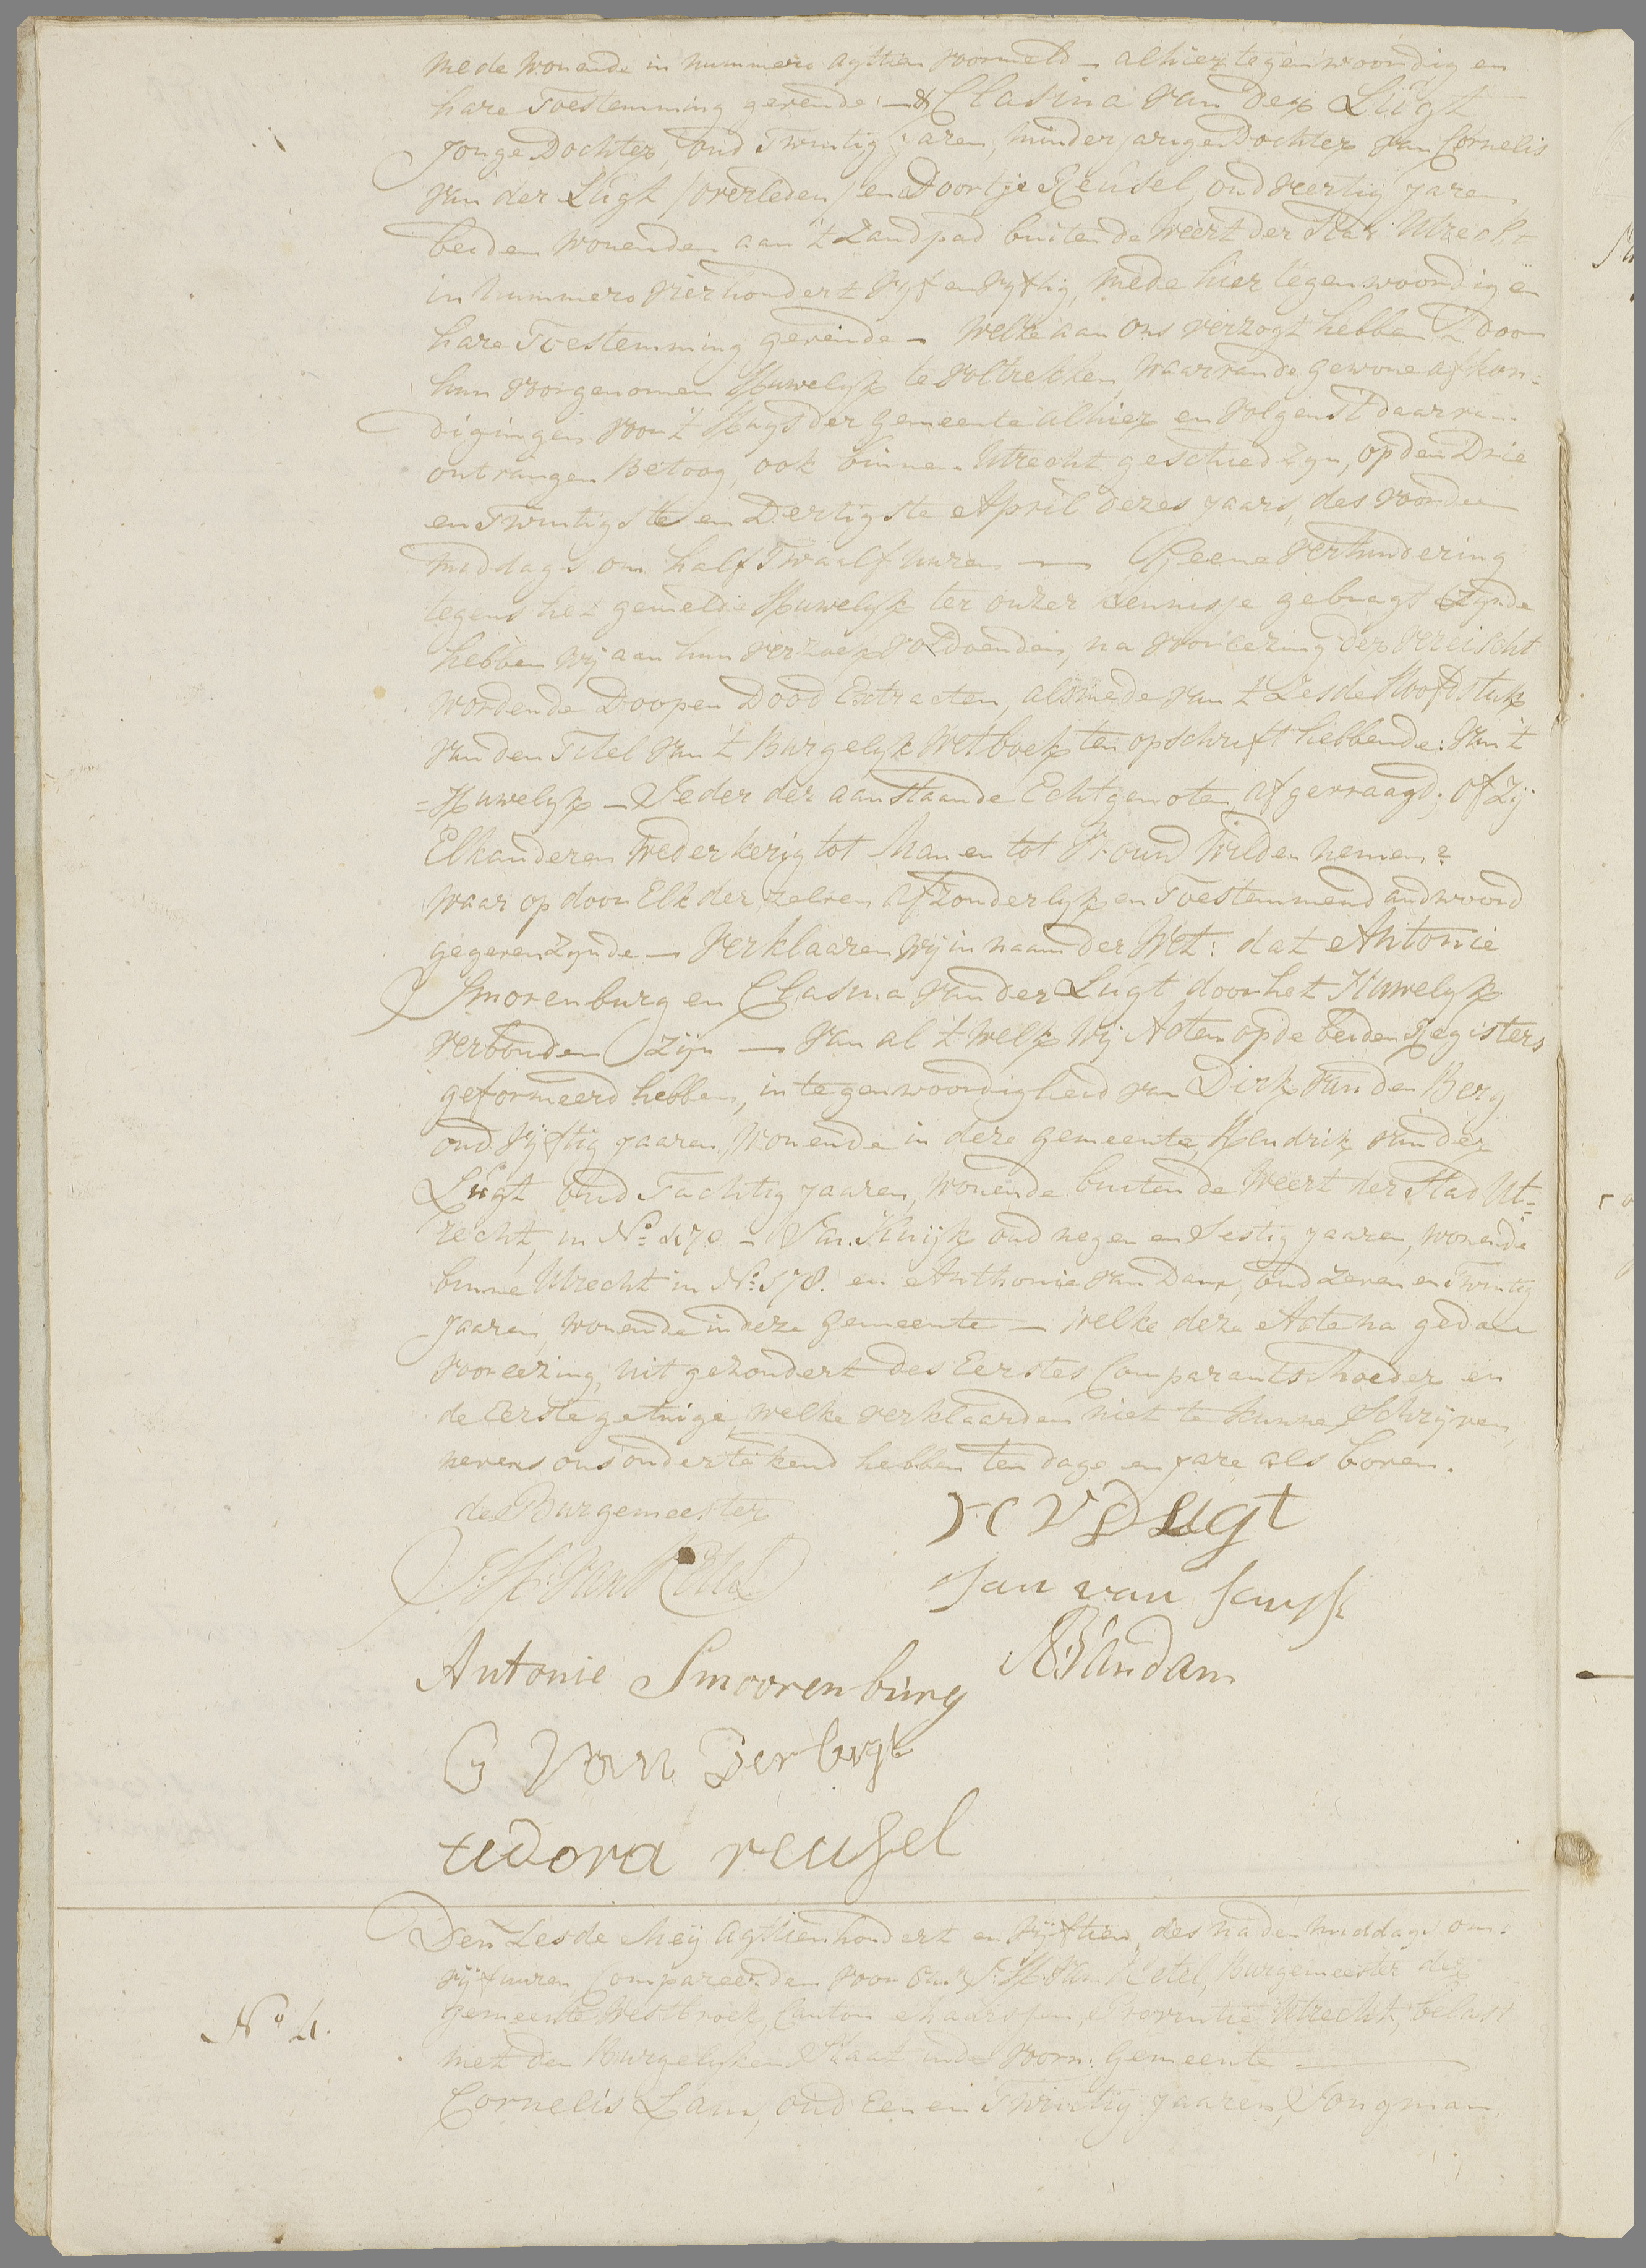 mede wonende in nummero agttien voormeld – alhier tegenwoordig en
hare Toestemming gevende – & Clasina van der Lugt
Jonge Dochter, oud Twintig jaren, minderjarige Dochter van Cornelis
van der Lugt /overleden/ en Doortje Reusel, oud veertig jaren,
beiden wonenden aan 't Zandpad buiten de Weert der Stad Utrecht
in nummero vierhondert vyf en vyftig, mede hier tegenwoordig en
hare Toestemming gevende – Welke aan Ons verzogt hebben 't door
hun voorgenomen Huwelyk te voltrekken, waarvan de gewone afkon=
digingen voor 't Huys der gemeente alhier en volgens 't daarvan
ontvangen Betoog, ook binnen Utrecht geschied zyn, op den Drie
en Twintigste en Dertigste April dezes jaars, des voorde
middags om half Twaalf uuren — Geene verhindering
tegens het gemelde Huwelyk ter onzer kennisse gebragt Zynde
hebben wij aan hun verzoek voldoenden, na voorlezing der vereischt
wordende Doop en Dood Extracten, alsmede van 't Zesde Hoofdstuk
van den Titel van 't Burgelyk Wetboek ten opschrift hebbende: van 't
=Huwelyk – Ieder der aanstaande Echtgenoten afgevraagd; of Zij
Elkanderen wederkerig tot Man en tot Vrouw wilden nemen?
waar op door Elk der zelven afzonderlyk en Toestemmend andwoord
gegeven zynde – Verklaaren wij in naam der Wet: dat Antonie
Smorenburg en Clasina van der Lugt door het Huwelyk
verbonden zijn – van al 't welk Wij Acten op de beiden Registers
geformeerd hebben, in tegenwoordigheid van Dirk van den Berg
oud vyftig jaaren, wonende in deze gemeente, Hendrik van der
Lugt oud Tachtig jaaren, wonende buiten de Weert der Stad Ut=
recht, in No 470 – Jan Kuijk oud negen en Sestig jaaren, wonende
binne Utrecht in No: 578. en Anthonie van Dam, oud zeven en Twintig
jaaren, wonende in deze gemeente – welke deze Acte na gedane
voorlezing, uitgezondert des Eerstes Comparants Moeder en
de Eerste getuige, welke verklaarden niet te kunne Schrijven,
nevens ons ondertekend hebben ten dage en jare als boven.
de Burgemeester
H V D Lugt
J: H: van Ketel
Jan van
A: Van dam
Antonie Smoorenburg
C van Der lugt
tudora reusel
No 4.
Den Zesde Meij agttienhondert en vijftien, des na den middags om
vijf uuren Compareerden voor Ons J: H: van Ketel, Burgemeester der
gemeente Westbroek, Canton Maarssen, Provintie Utrecht, belast
met den Burgelyken Staat in de voorn: gemeente –
Cornelis Lam, oud Een en Twintig jaaren, Jongman